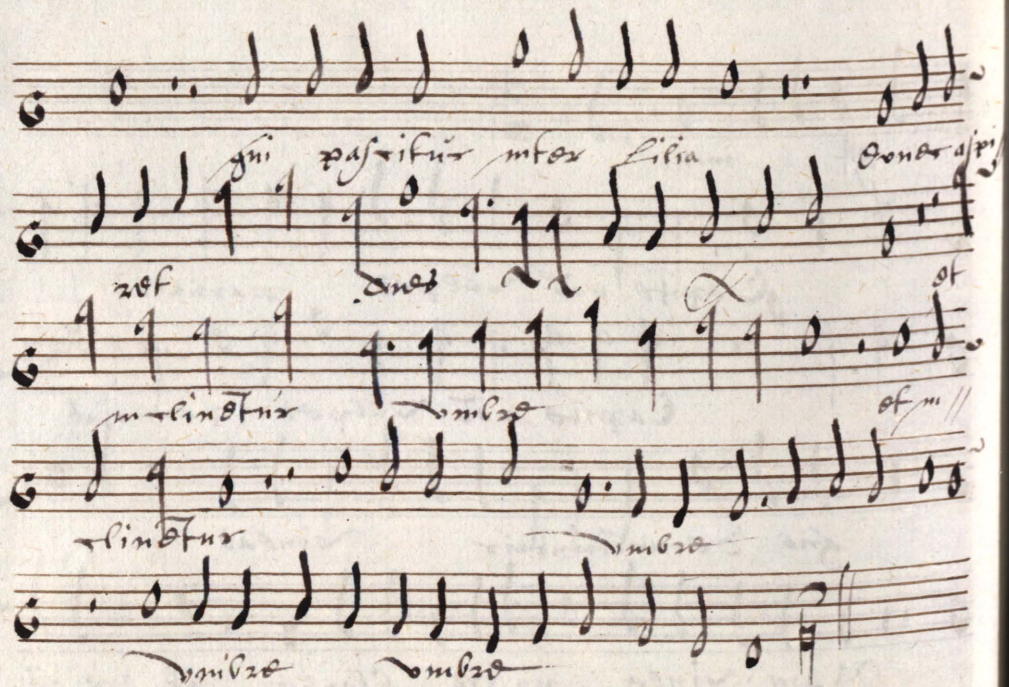 qui pascitur inter Lilia donec aspi
ret dies et
inclinētur umbre et in
clinētur umbre
umbre umbre